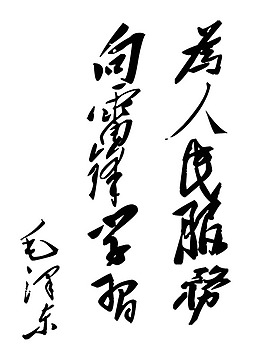 為人民服務
向雷锋学習
毛澤东